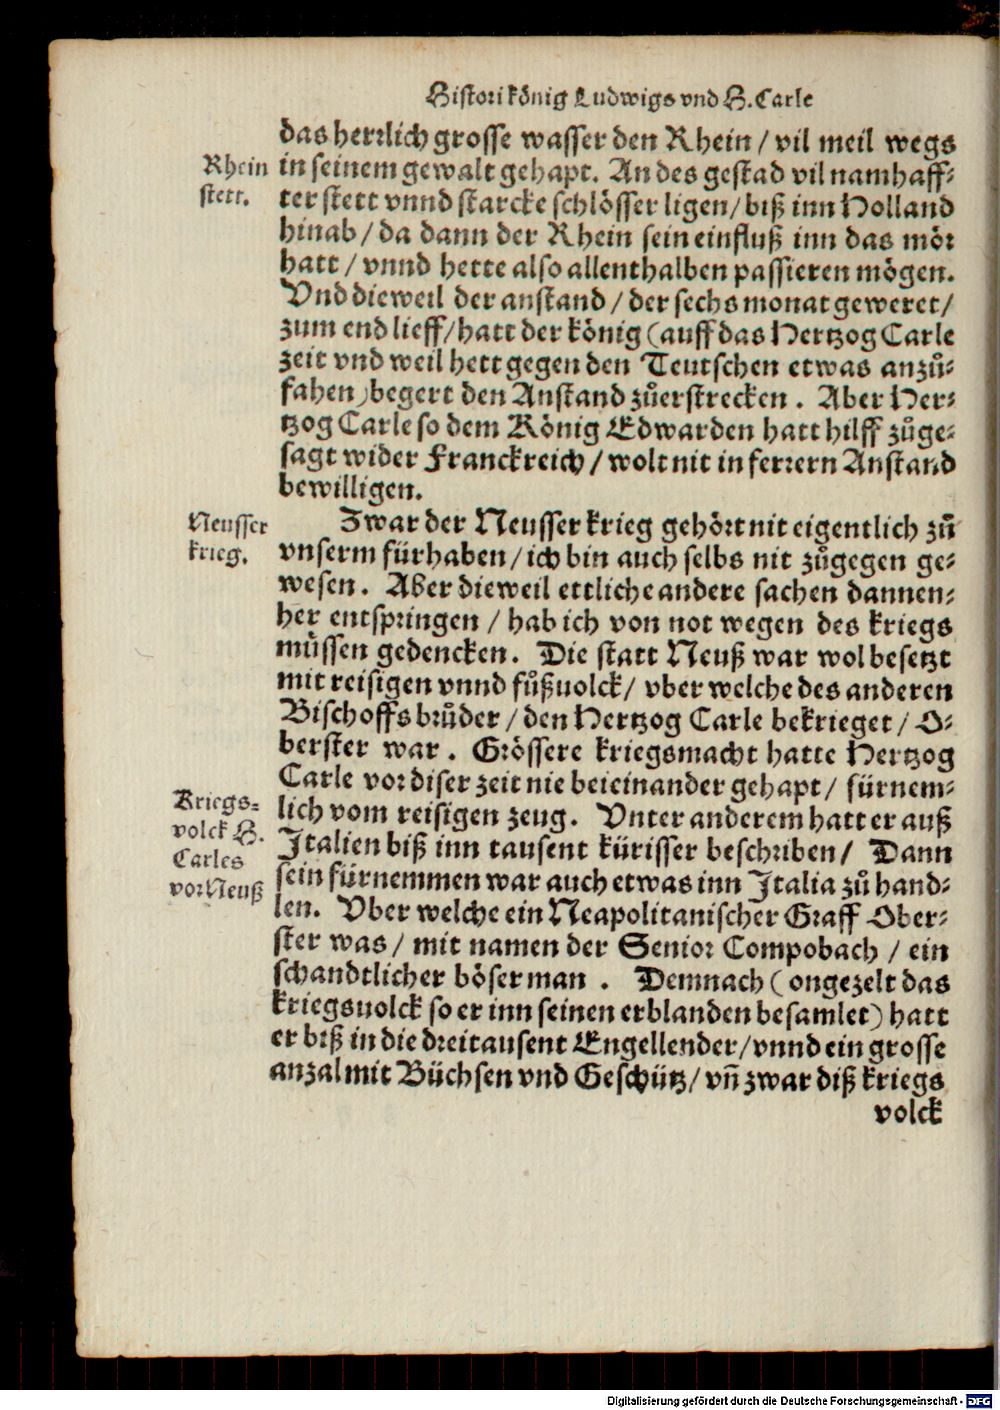 Histori könig Ludwigs vnd H. Carle
das herrlich grosse wasser den Rhein / vil meil wegs
Rhein
stett.
in seinem gewalt gehapt. An des gestad vil namhaff-
ter stett vnnd starcke schlösser ligen / biß inn Holland
hinab / da dann der Rhein sein einfluß inn das mör
hatt / vnnd hette also allenthalben passieren mögen.
Vnd dieweil der anstand / der sechs monat geweret /
zum end lieff / hatt der könig (auff das Hertzog Carle
zeit vnd weil hett gegen den Teutschen etwas anzuͦ-
fahen) begert den Anstand zuͦerstrecken. Aber Her-
tzog Carle so dem König Edwarden hatt hilff zuͦge-
sagt wider Franckreich / wolt nit in ferrern Anstand
bewilligen.
Neusser
krieg.
Zwar der Neusser krieg gehört nit eigentlich zuͦ
vnserm fürhaben / ich bin auch selbs nit zuͦgegen ge-
wesen. Aber dieweil ettliche andere sachen dannen-
her entspringen / hab ich von not wegen des kriegs
müssen gedencken. Die statt Neuß war wol besetzt
mit reisigen vnnd fuͦßuolck / vber welche des anderen
Bischoffs bruͦder / den Hertzog Carle bekrieget / O-
berster war. Grössere kriegsmacht hatte Hertzog
Carle vor diser zeit nie beieinander gehapt / fürnem-
Kriegs-
volck H.
Carles
vor Neuß
lich vom reisigen zeug. Vnter anderem hatt er auß
Italien biß inn tausent kürisser beschriben / Dann
sein fürnemmen war auch etwas inn Italia zuͦ hand-
len. Vber welche ein Neapolitanischer Graff Ober-
ster was / mit namen der Senior Compobach / ein
schandtlicher böser man. Demnach (ongezelt das
kriegsuolck so er inn seinen erblanden besamlet) hatt
er biß in die dreitausent Engellender / vnnd ein grosse
anzal mit Büchsen vnd Geschütz / vn̄ zwar diß kriegs
volck
Digitalisierung gefördert durch die Deutsche Forschungsgemeinschaft - DFG